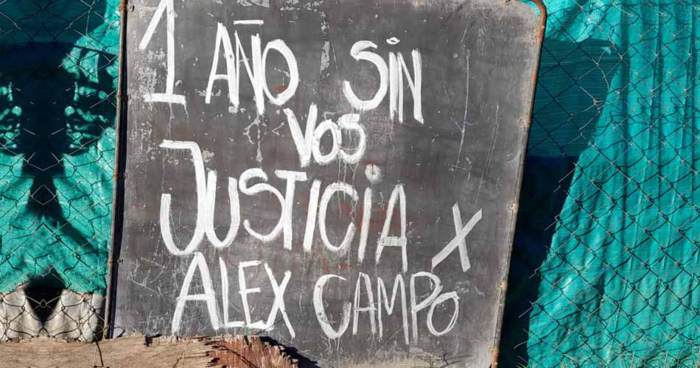 1 AÑO SiN
VOS
JUSTICiA X
ALEX CAMPO